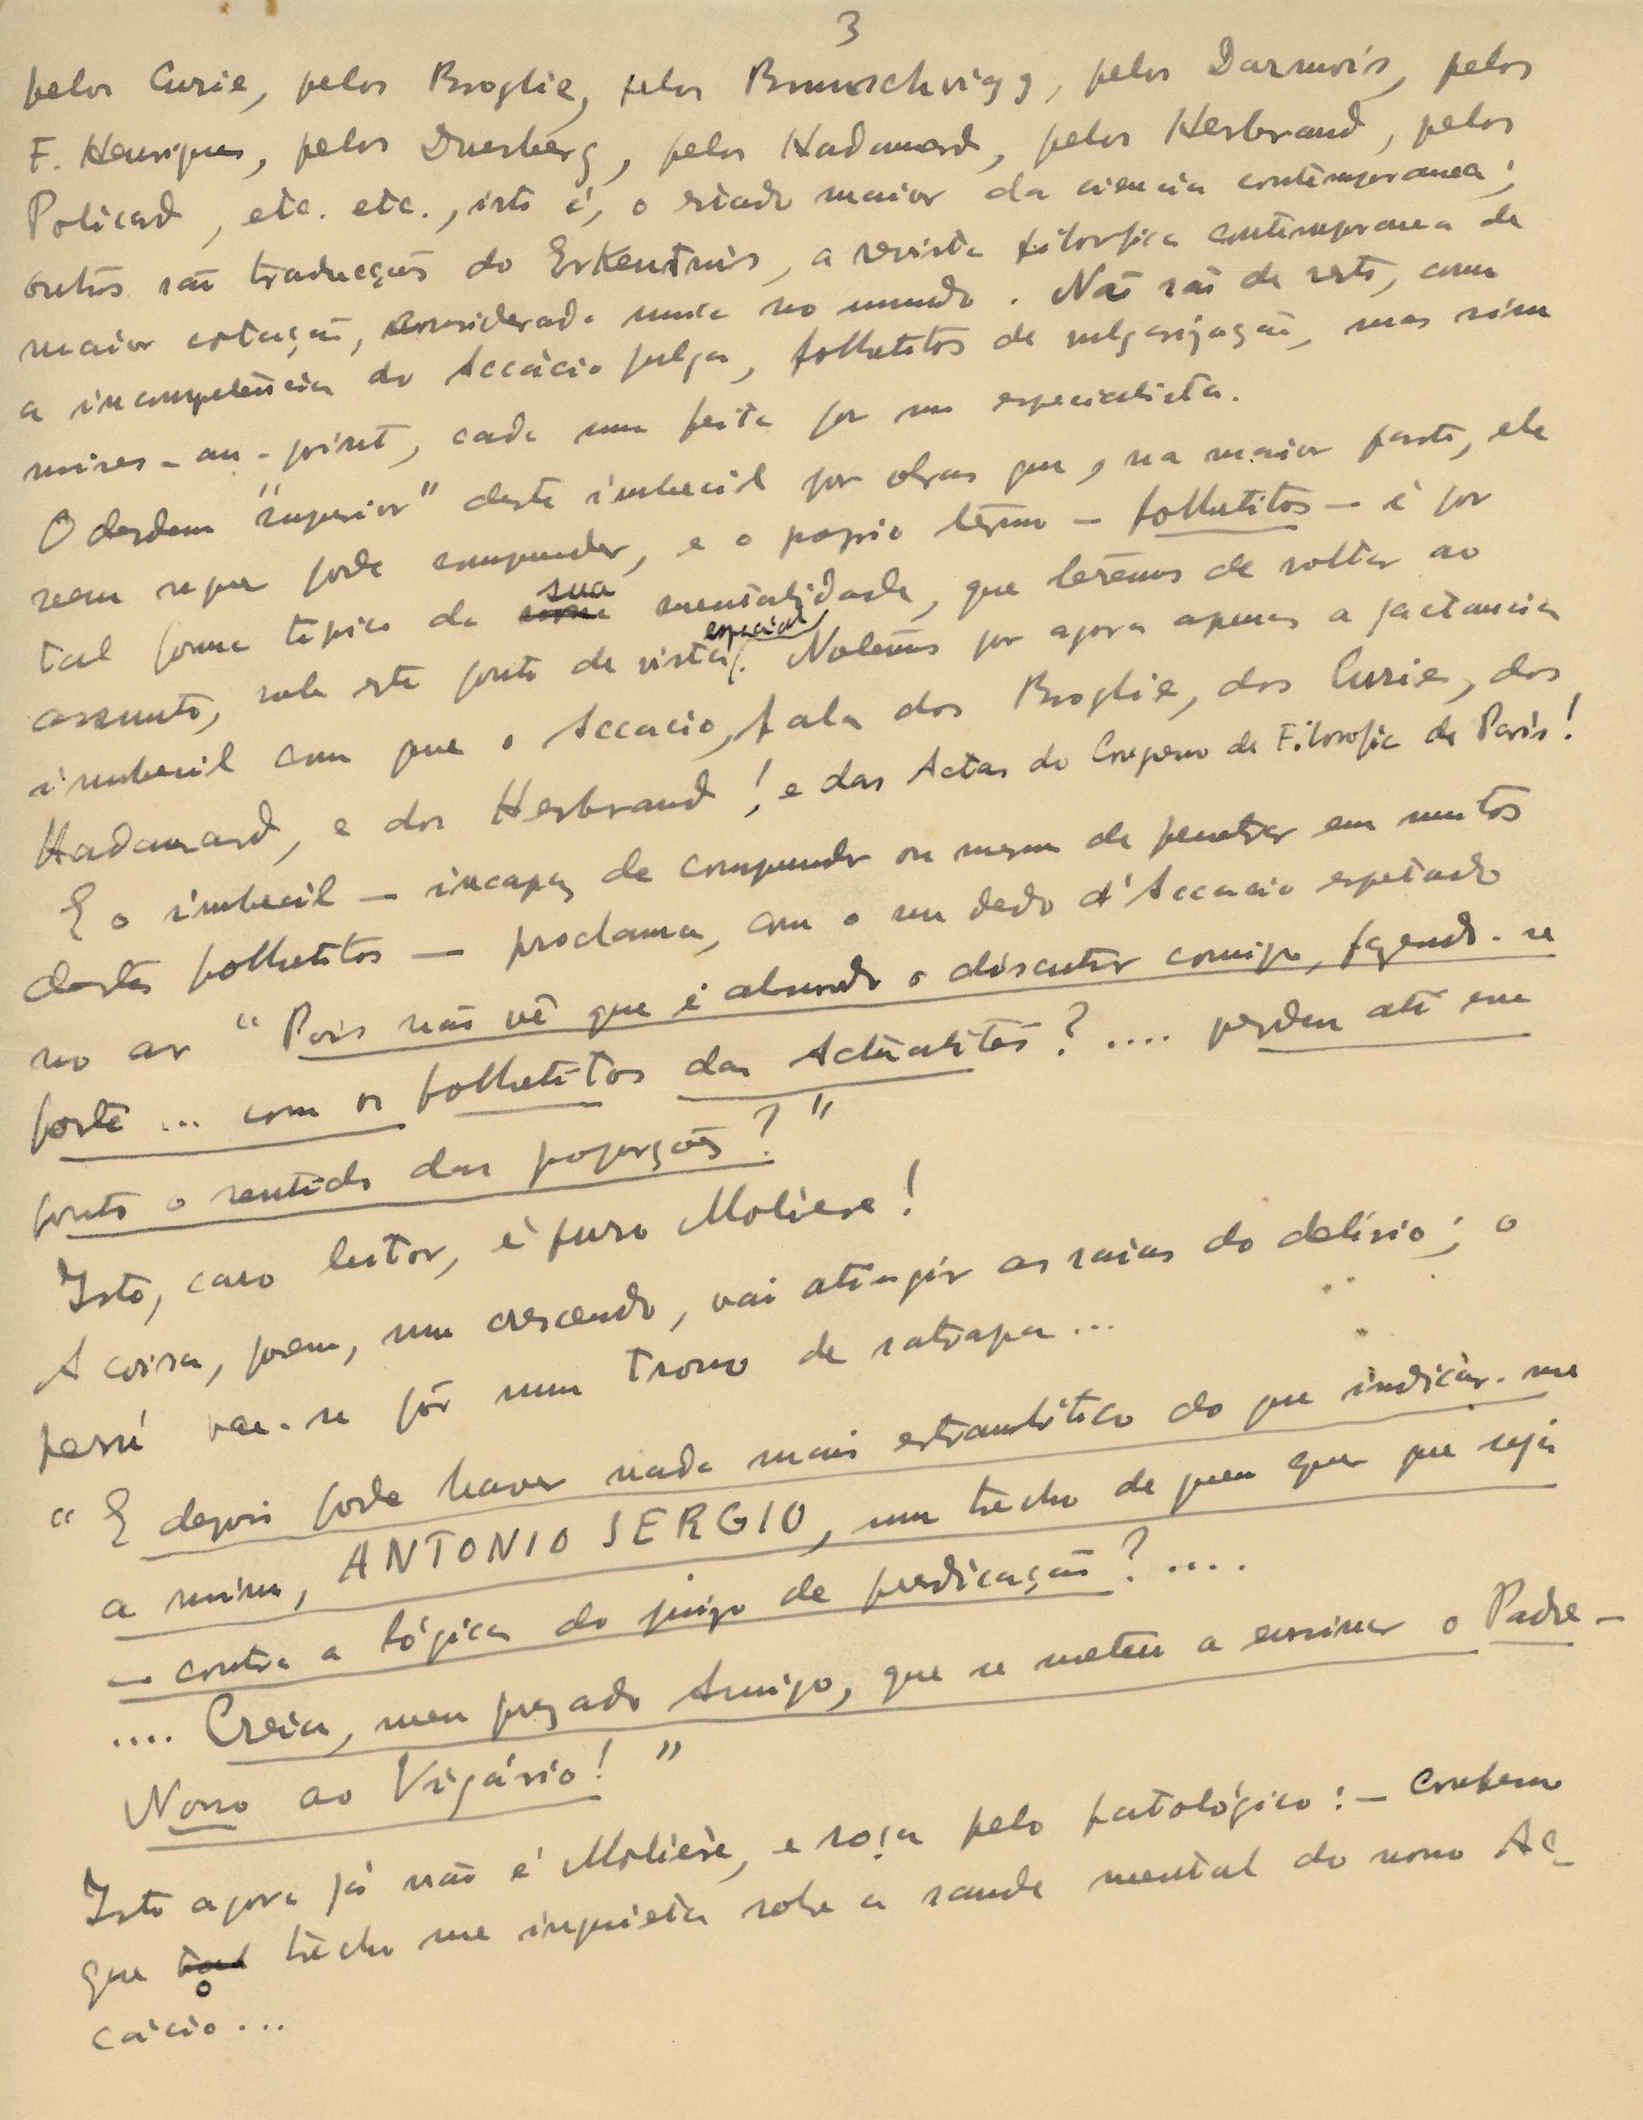 3
pelos Curie, pelos Broglie, pelos Brunschvigg, pelos Darmois, pelos
F. Henriques, pelos Duesberg, pelos Hadamard, pelos Herbrand, pelos
Policard, etc. etc., isto é, o estado maior da ciencia contemporanea;
outros são traducções do Erkentnis, a revista filosofica contemporanea de
maior cotação, considerada unica no mundo. Não são de resto, como
a incompetência do Accácio julga, folhetitos de vulgarização, mas sim
mises-au-point, cada uma feita por um especialista.
O desdem "superior" deste imbecil por obras que, na maior parte, ele
nem sequer pode compreender, e o proprio termo - folhetitos - é por
tal forma tipico da sua mentalidade, que teremos de voltar ao
assunto, sob este ponto de vista especial. Notemos por agora apenas a jactancia
imbecil com que o Accacio, fala dos Broglie, dos Curie, dos
Hadamard, e dos Herbrand! e das Actas do Congresso de Filosofia de Paris!
E o imbecil - incapaz de compreender ou mesmo de penetrar em muitos
destes folhetitos - proclama, com o seu dedo d'Accacio espetado
no ar "Pois não vê que é absurdo o discutir comigo, fazendo-se
forte ... com os folhetitos das Actualités? .... perdeu até esse
ponto o sentido das proporções?"
Isto, caro leitor, é puro Moliere!
A coisa, porem, num crescendo, vai atingir as raias do delirio; o
perú vae-se pôr num trono de satrapa ...
"E depois pode haver nada mais estrambótico do que indicar-me
a mim, ANTONIO SERGIO, um trecho de quem quer que seja
- contra a lógica do juizo de predicação? ....
.... Creia, meu prezado Amigo, que se meteu a ensinar o Padre-
Nosso ao Vigário!"
Isto agora já não é Molière, e roça pelo patológico: - Confesso
que o trecho me inquieta sobre a saude mental do novo Ac-
cácio ...